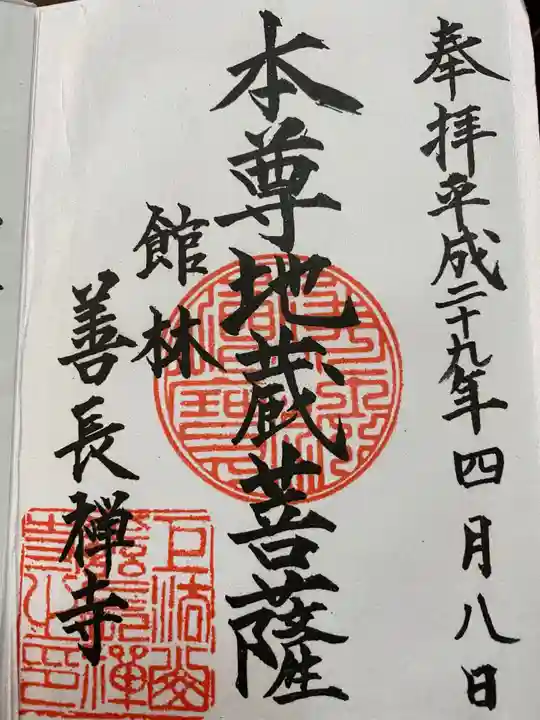 奉拝平成二十九年四月八日
本尊地蔵菩薩
館林
善長禅寺